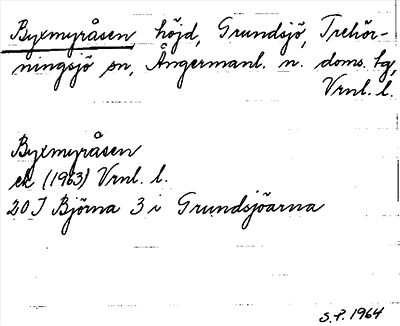 Byxmyråsen höjd, Grundsjö, Trehör-
ningsjö sn, Ångermanl. n. doms. tg,
Vrnl. l.
Byxmyråsen
ek (1963) Vrnl. l.
20 J Björna 3 i Grundsjöarna
S.P. 1964